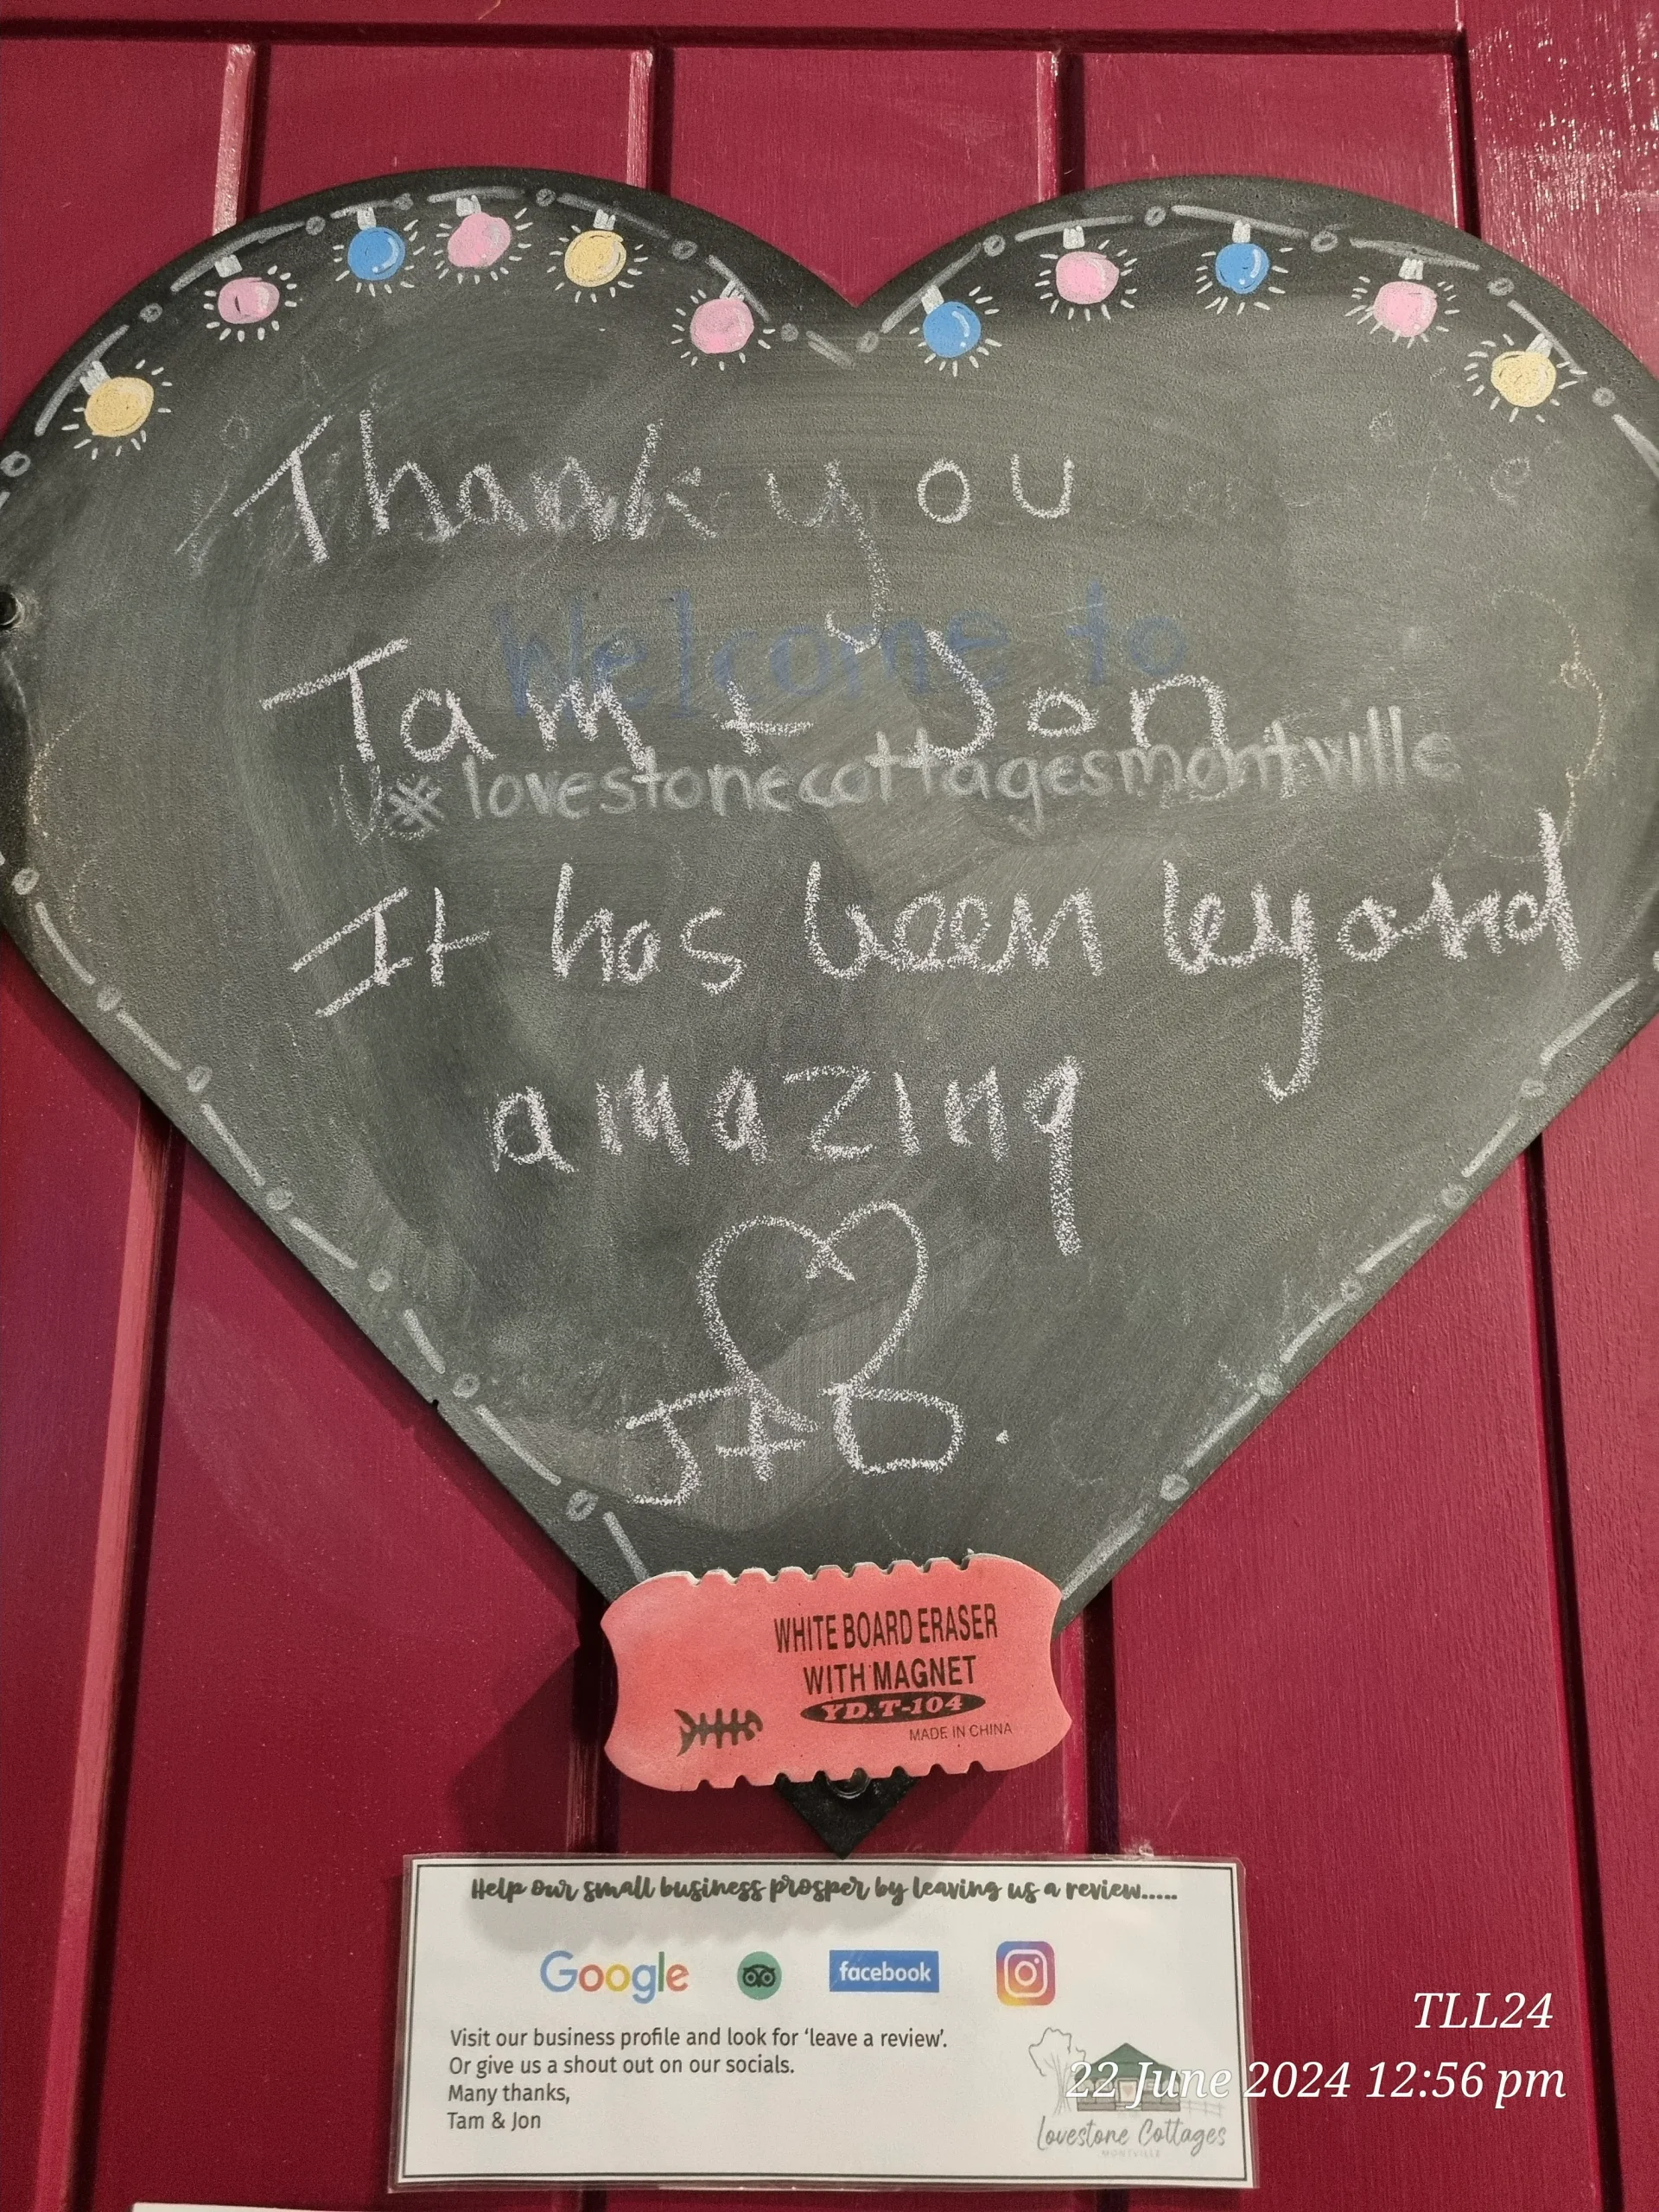 Thank you
Welcome to
Tam + Jon
#lovestonecottagesmontville
It has been beyond
amazing
J+D.
WHITE BOARD ERASER
WITH MAGNET
YD.T-104
MADE IN CHINA
Help our small business prosper by leaving us a review.....
Google
facebook
Visit our business profile and look for ‘leave a review’.
Or give us a shout out on our socials.
Many thanks,
Tam & Jon
Lovestone Cottages
MONTVILLE
TLL24
22 June 2024 12:56 pm